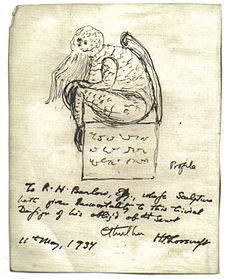 Profile
To R. H. Barlow, Esq., whose Sculpture
hath given Immortality to this trivial
Design of his oblig'd ob^t Serv^t
Cthulhu
HPLovecraft
11th May, 1934